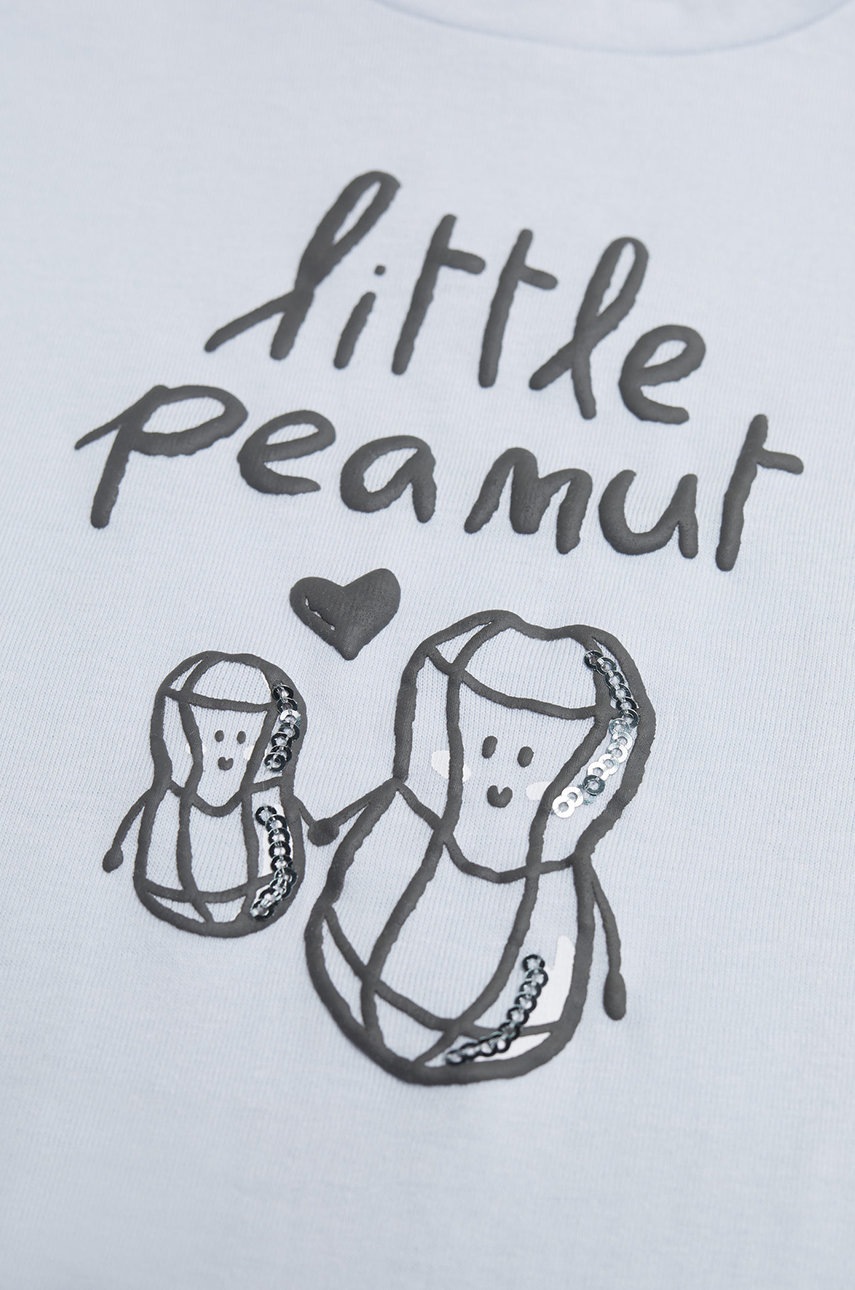 little
peanut